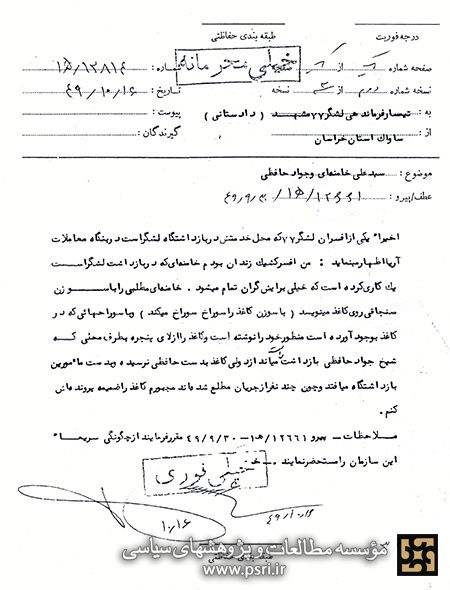 درجه فوریت
طبقه بندی حفاظتی
خیلی محرمانه
صفحه شماره یک از یک
شماره : ۱۲۸۱۴/ه۱
نسخه شماره دوم از نسخه
تاریخ : ۴۹/۱۰/۱۶
به : تیمسار فرماندهی لشگر ۷۷ مشهد ( دادستانی )
پیوست :
از : ساواک استان خراسان
گیرندگان :
موضوع : سید علی خامنه‌ای و جواد حافظی
عطف/پیرو : ۱۲۶۶۱/ه۱ ۴۹/۹/۳۰
اخیرا" یکی از افسران لشگر ۷۷ که محل خدمتش در بازداشتگاه لشگر است در بنگاه معاملات
آریا اظهار مینماید : من افسر کشیک زندان بودم خامنه‌ای که در بازداشت لشگر است
یک کاری کرده است که خیلی برایش گران تمام میشود . خامنه‌ای مطلبی را با سوزن
سنجاقی روی کاغذ مینویسد ( با سوزن کاغذ را سوراخ سوراخ میکند ) و با سوراخهائی که در
کاغذ بوجود آورده است منظور خود را نوشته است و کاغذ را از لای پنجره بطرف محلی که
شیخ جواد حافظی بازداشت بوده میاندازد ولی کاغذ بدست حافظی نرسیده و بدست مامورین
بازداشتگاه میافتد و چون چند نفر از جریان مطلع شده‌اند مجبورم کاغذ را ضمیمه پرونده‌اش
کنم .
ملاحظات - پیرو ۱۲۶۶۱/ه۱ - ۴۹/۹/۳۰ مقرر فرمایند از چگونگی سریعا"
این سازمان را مستحضر نمایند . خ
خیلی فوری
۴۹/۱۰/
۱۰/۱۶
طبقه بندی حفاظتی
مؤسسه مطالعات و پژوهشهای سیاسی
www.psri.ir